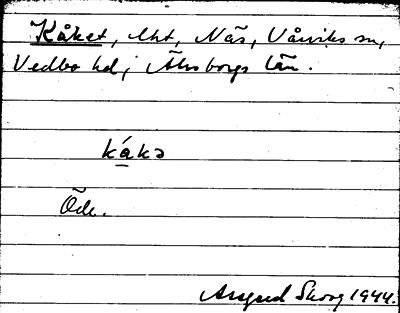 Kåket, lht, Näs, Vårviks sn,
Vedbo hd, Älvsborgs län.
kákə
Öde.
Skog 1944.